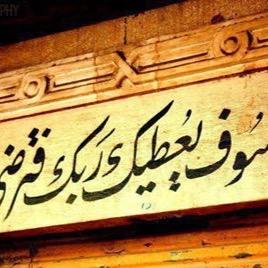 PHY
سوف يعطيك ربك فترضى